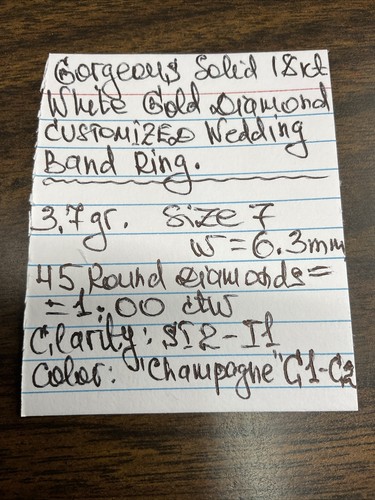 Gorgeous Solid 18kt
White Gold Diamond
CUSTOMIZED Wedding
Band Ring.
3,7gr. Size 7
w=6.3mm
45 Round Diamonds=
=1.00 ctw
Clarity: SI2-I1
Color: "Champagne" C1-C2